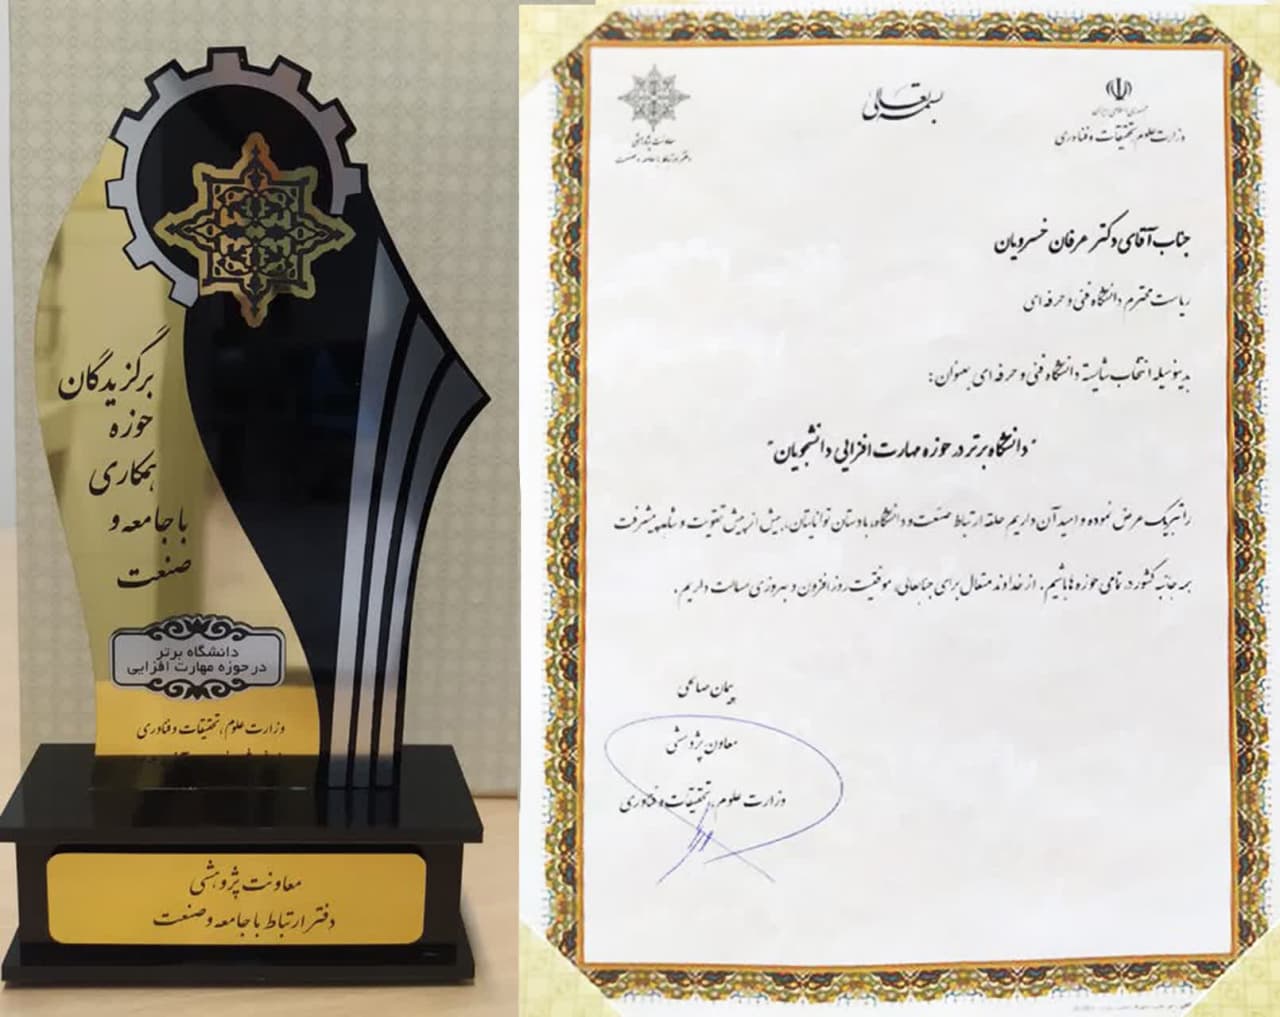 برگزیدگان
حوزه
همکاری
با جامعه و
صنعت
دانشگاه برتر
در حوزه مهارت افزایی
وزارت علوم، تحقیقات و فناوری
معاونت پژوهشی
دفتر ارتباط با جامعه و صنعت
بسمه تعالی
جمهوری اسلامی ایران
وزارت علوم، تحقیقات و فناوری
معاونت پژوهشی
دفتر ارتباط با جامعه و صنعت
جناب آقای دکتر عرفان خسرویان
ریاست محترم دانشگاه فنی و حرفه ای
بدینوسیله انتخاب شایسته دانشگاه فنی و حرفه ای بعنوان:
"دانشگاه برتر در حوزه مهارت افزایی دانشجویان"
را تبریک عرض نموده و امید آن داریم حلقه ارتباط صنعت و دانشگاه، با دستان توانایتان، بیش از پیش تقویت و شاهد پیشرفت
همه جانبه کشور در تمامی حوزه ها باشیم. از خداوند متعال برای جنابعالی، موفقیت روزافزون و بهروزی مسالت داریم.
پیمان صالحی
معاون پژوهشی
وزارت علوم، تحقیقات و فناوری